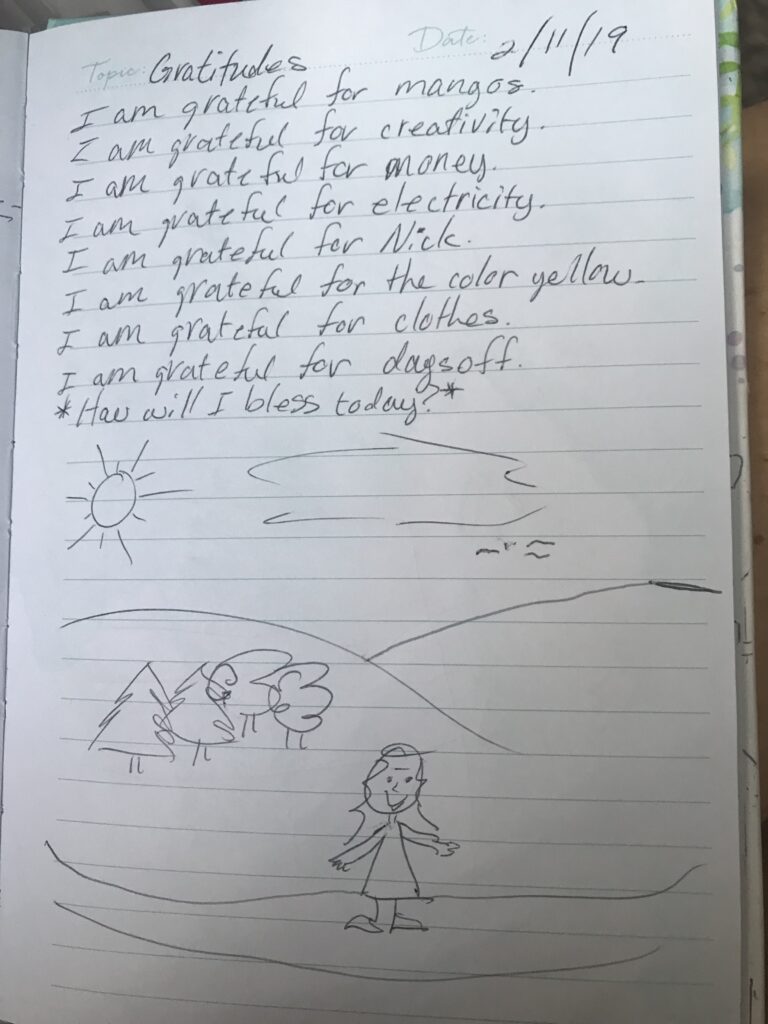 Topic: Gratitudes Date: 2/11/19
I am grateful for mangos.
I am grateful for creativity.
I am grateful for money.
I am grateful for electricity.
I am grateful for Nick.
I am grateful for the color yellow.
I am grateful for clothes.
I am grateful for daysoff.
*How will I bless today?*